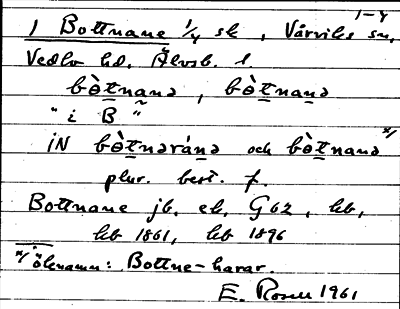 1-4
1 Bottnane 1/4 sk, Vårviks sn,
Vedbo hd. Älvsb. l.
bòt̲nanə, bòt̲nan̲ə
" i B̃ "
iN bòt̲nəránə och bòt̲nanə x/
plur. best. f.
Bottnane jb. ek. G62, kb,
kb 1861, kb 1896
x/ öknamn: Bottne-harar.
E. Rosell 1961